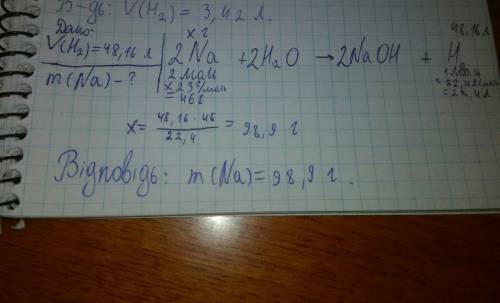 В-дь: V(H₂) = 3,42 л.
Дано:
V(H₂)=48,16 л
m(Na)-?
x г
48,16 л
2Na + 2H₂O → 2NaOH + H
2 моль
x 23 г/моль
= 46 г
1 моль
x 22,4 л/моль
= 22,4 л
x = 48,16 · 46 / 22,4 = 98,9 г
Відповідь: m(Na) = 98,9 г.